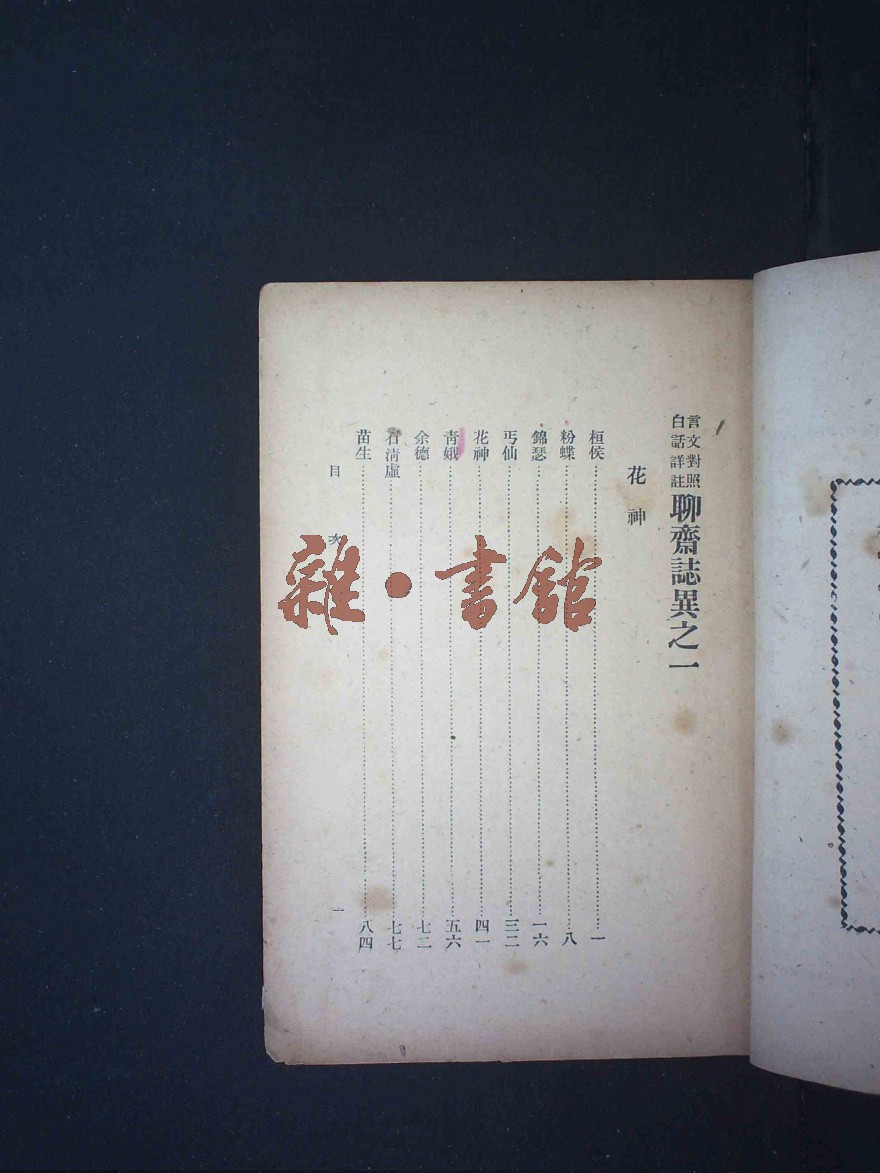 言文對照
白話詳註
聊齋誌異之一
花神
桓侯 一
粉蝶 八
錦瑟 一六
丐仙 三二
花神 四一
青娥 五六
余德 七二
石清虛 七七
苗生 八四
目次
一
雜·書館